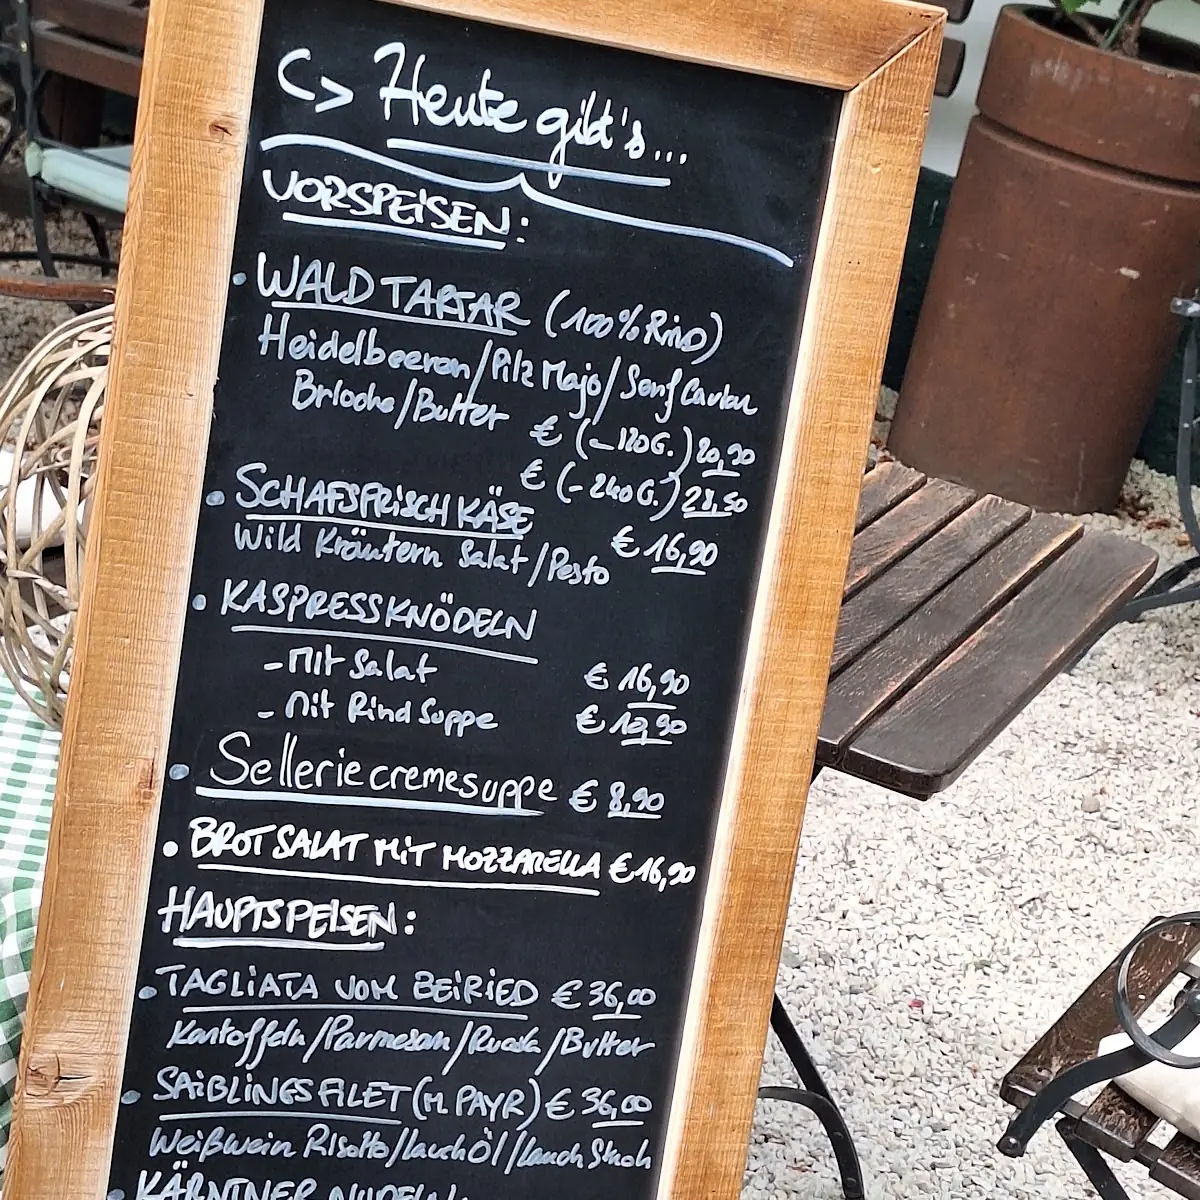 Heute gibt's...
VORSPEISEN:
• WALD TARTAR (100% RIND)
Heidelbeeren/Pilz Majo/Senf Caviar
Brioche/Butter
€ (~120G.) 20,90
€ (~240G.) 28,50
• SCHAFSFRISCHKÄSE
Wild Kräutern Salat/Pesto € 16,90
• KASPRESSKNÖDELN
- Mit Salat € 16,90
- Mit Rind Suppe € 10,90
• Selleriecremesuppe € 8,90
• BROT SALAT MIT MOZZARELLA € 16,90
HAUPTSPEISEN:
• TAGLIATA VOM BEIRIED € 36,00
Kartoffeln/Parmesan/Rucola/Butter
• SAIBLINGSFILET (M. PAYR) € 36,00
Weißwein Risotto/Lauch Öl/Lauch Stroh
• KÄRNTNER NUDELN